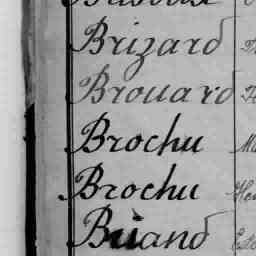 Brizard
Brouard
Brochu
Brochu
Briand